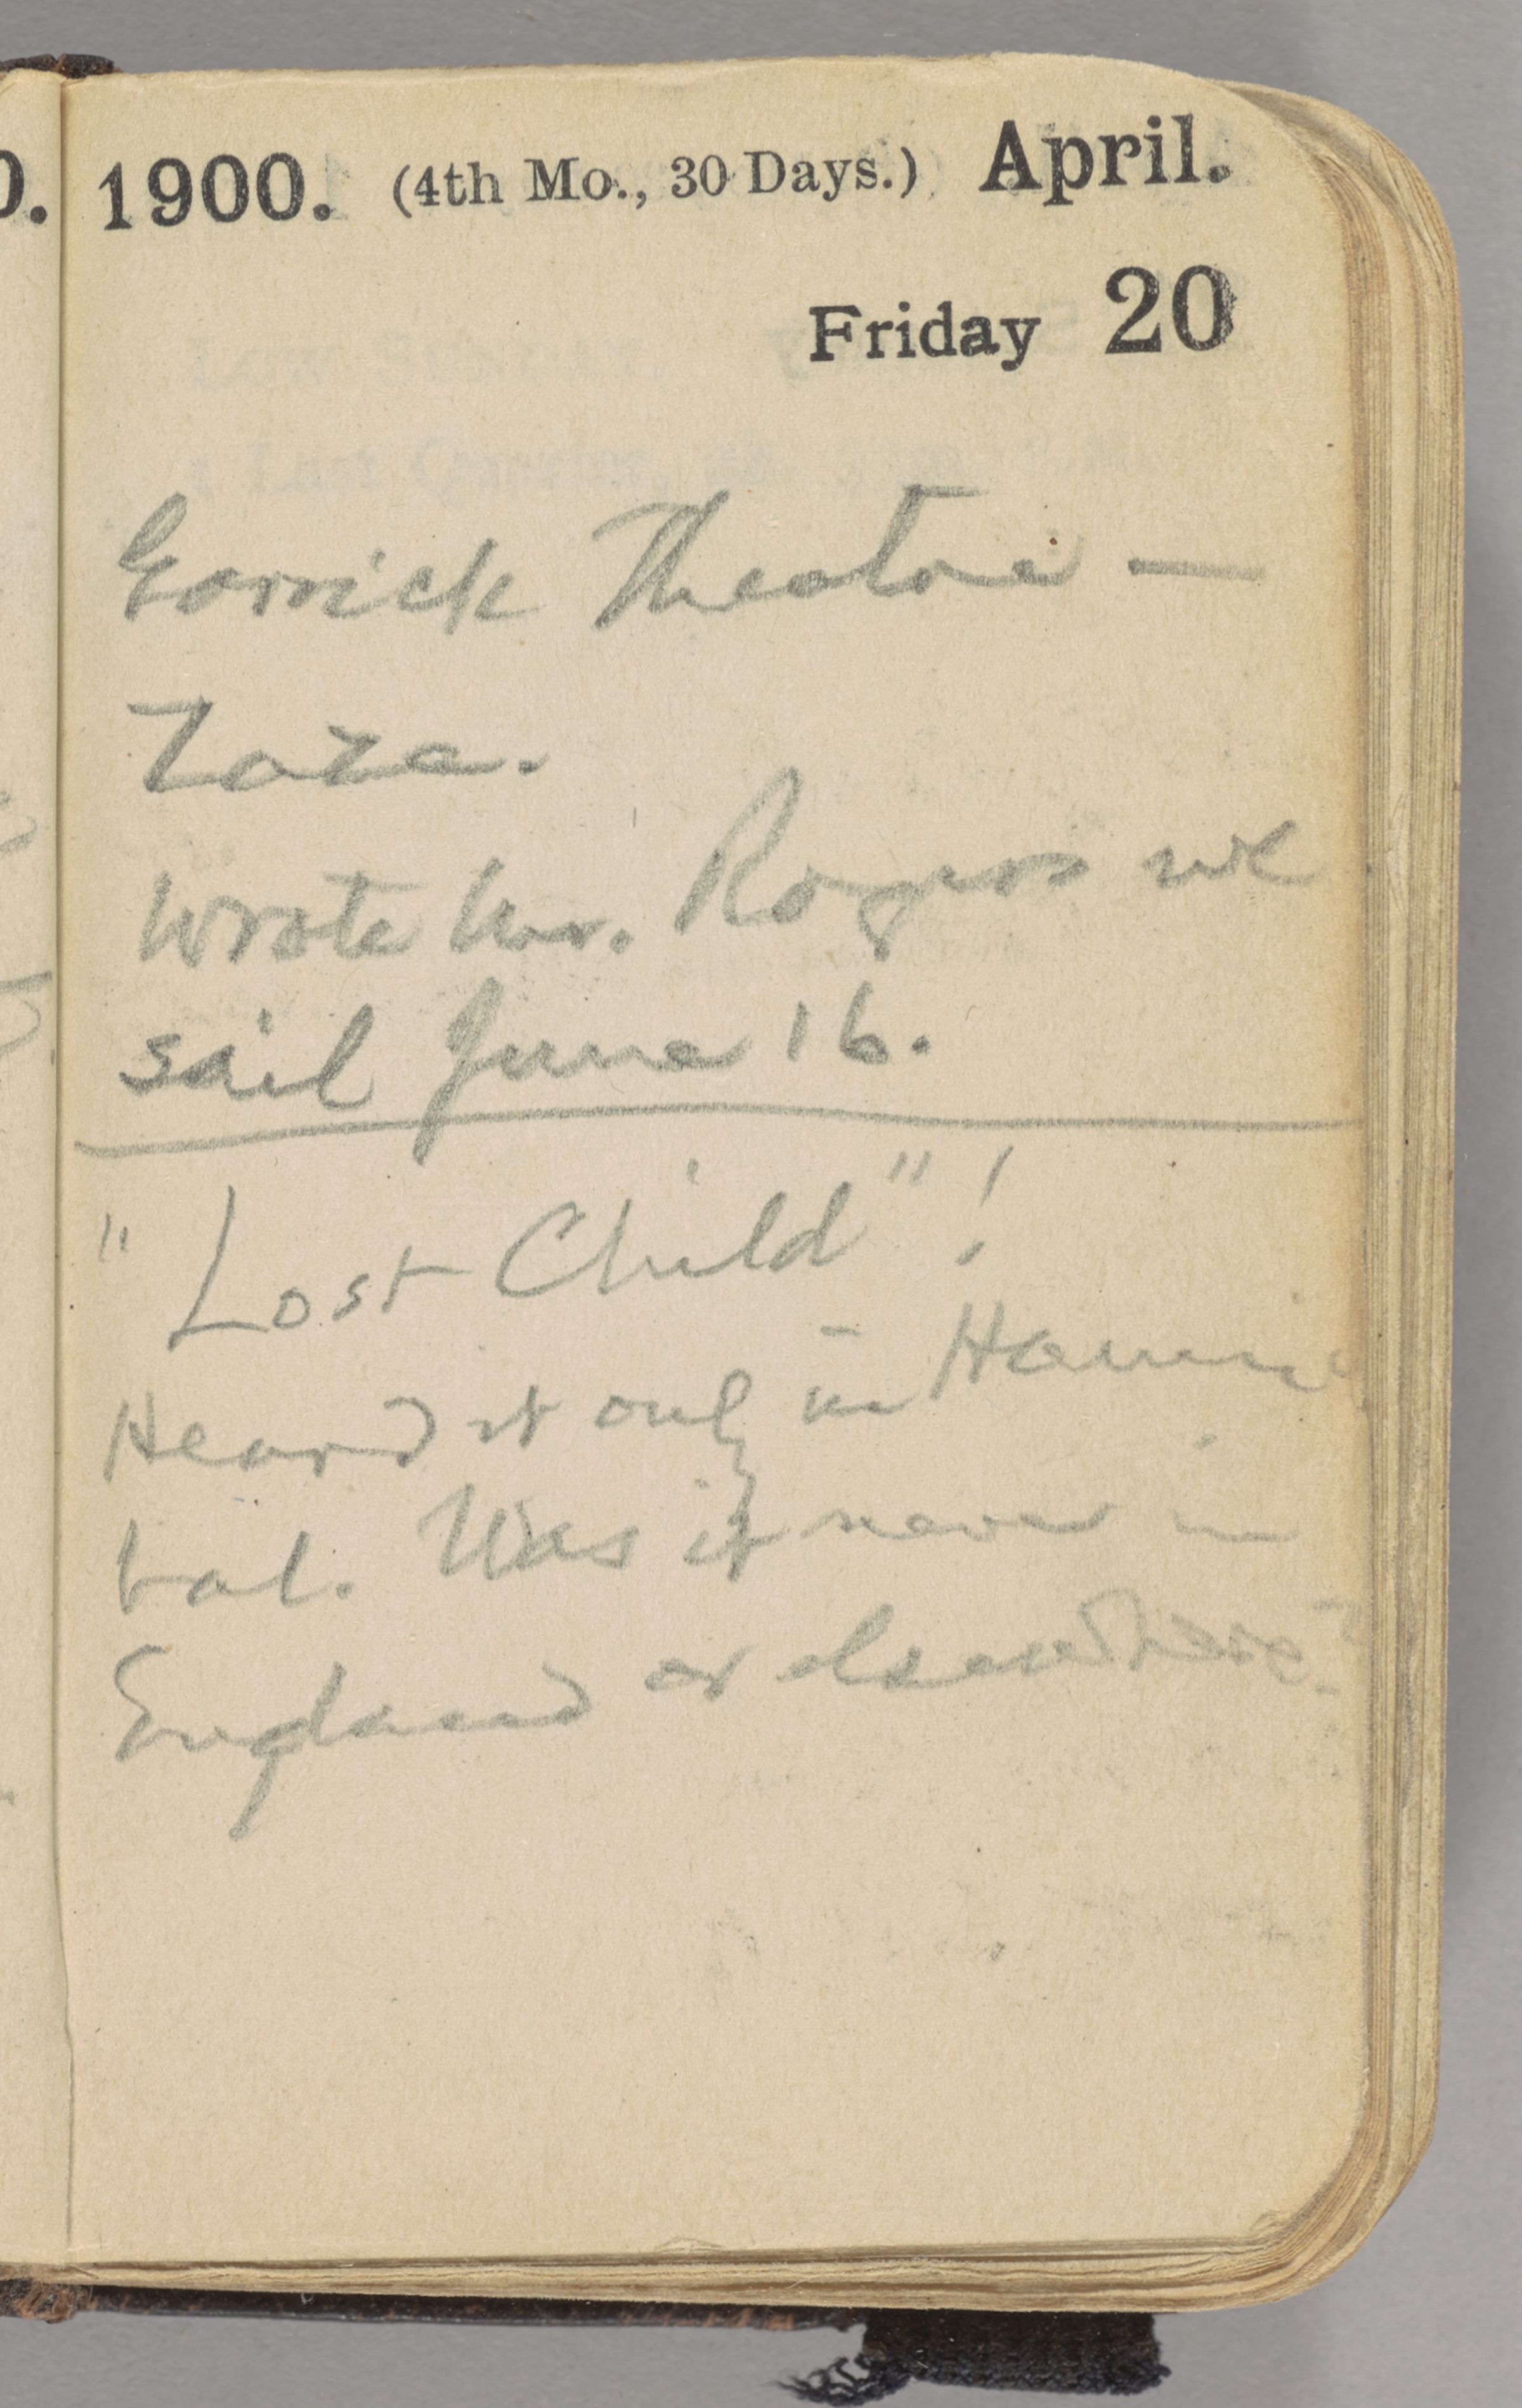 1900. (4th Mo., 30 Days.) April.
Friday 20
Garrick Theatre —
Zaza.
Wrote Mr. Rogers we
sail June 16.
"Lost Child"!
Heard it only in Hanni
bal. Was it never in
England or elsewhere?